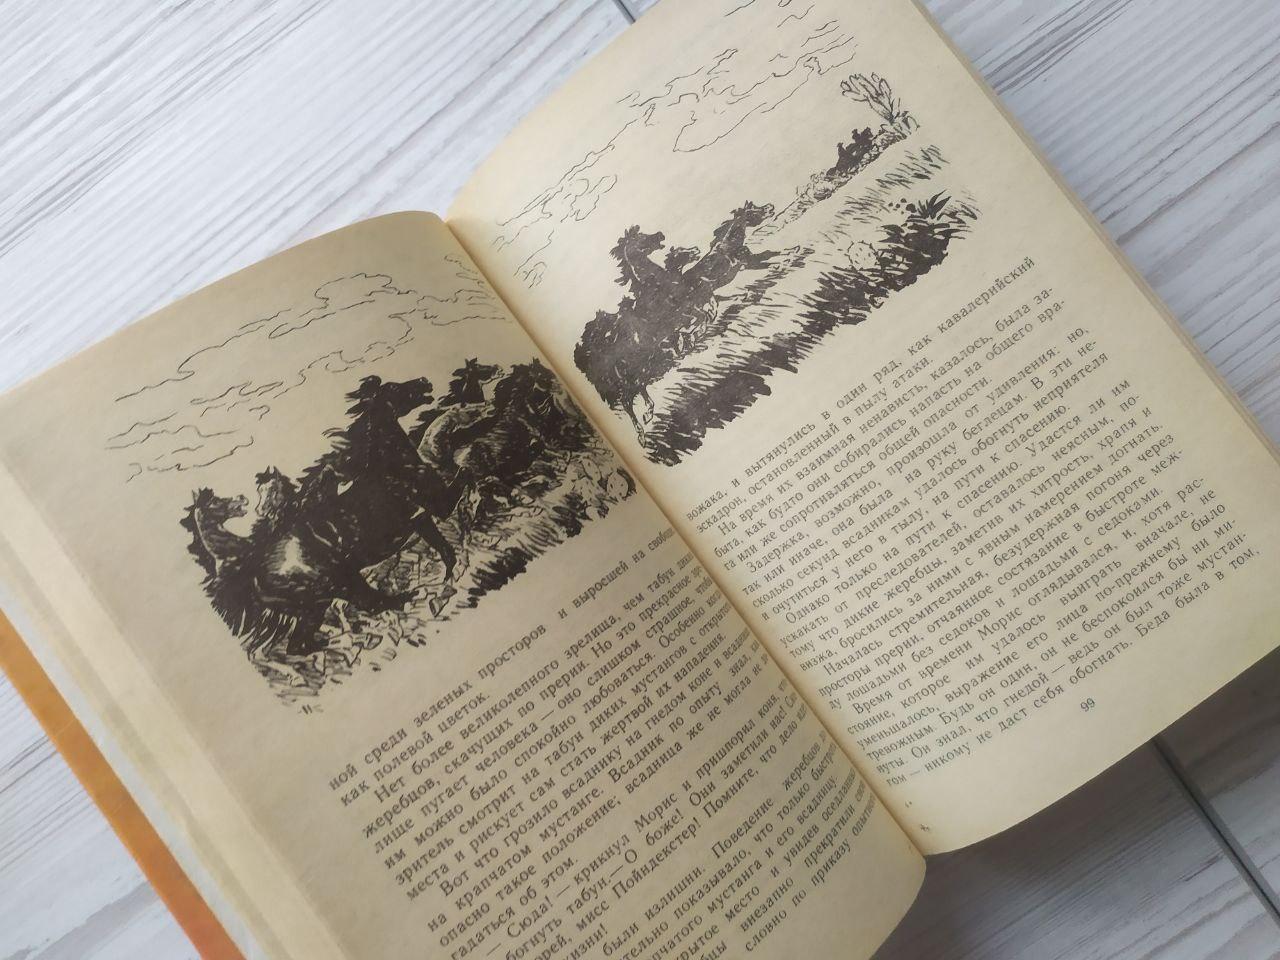 ной среди зеленых просторов и выросшей на свободе
как полевой цветок.
Нет более великолепного зрелища, чем табун диких
жеребцов, скачущих по прерии. Но это прекрасное зре-
лище пугает человека — оно слишком страшное, чтобы
им можно было спокойно любоваться. Особенно когда
зритель смотрит на табун диких мустангов с открытого
места и рискует сам стать жертвой их нападения.
Вот что грозило всаднику на гнедом коне и всаднице
на крапчатом мустанге. Всадник по опыту знал, как
опасно такое положение; всадница же не могла не до-
гадаться об этом.
— Сюда! — крикнул Морис и пришпорил коня, что
богнуть табун. — О боже! Они заметили нас! Ско
орей, мисс Пойндекстер! Помните, что дело идет
жизни!
были излишни. Поведение жеребцов
тельно показывало, что только быстрота
пчатого мустанга и его всадницу.
крытое место и увидев оседланных
бцы внезапно прекратили
словно по приказу опытного
вожака, и вытянулись в один ряд, как кавалерийский
эскадрон, остановленный в пылу атаки.
На время их взаимная ненависть, казалось, была за-
быта, как будто они собирались напасть на общего вра-
га или же сопротивляться общей опасности.
Задержка, возможно, произошла от удивления; но,
так или иначе, она была на руку беглецам. В эти не-
сколько секунд всадникам удалось обогнуть неприятеля
и очутиться у него в тылу, на пути к спасению.
Однако только на пути к спасению. Удастся ли им
ускакать от преследователей, оставалось неясным, по-
тому что дикие жеребцы, заметив их хитрость, храпя и
визжа, бросились за ними с явным намерением догнать.
Началась стремительная, безудержная погоня через
просторы прерии, отчаянное состязание в быстроте меж-
ду лошадьми без седоков и лошадьми с седоками.
Время от времени Морис оглядывался, и, хотя рас-
стояние, которое им удалось выиграть вначале, не
уменьшалось, выражение его лица по-прежнему было
тревожным. Будь он один, он не беспокоился бы ни ми-
нуты. Он знал, что гнедой — ведь он был тоже мустан-
гом — никому не даст себя обогнать. Беда была в том,
99
4*